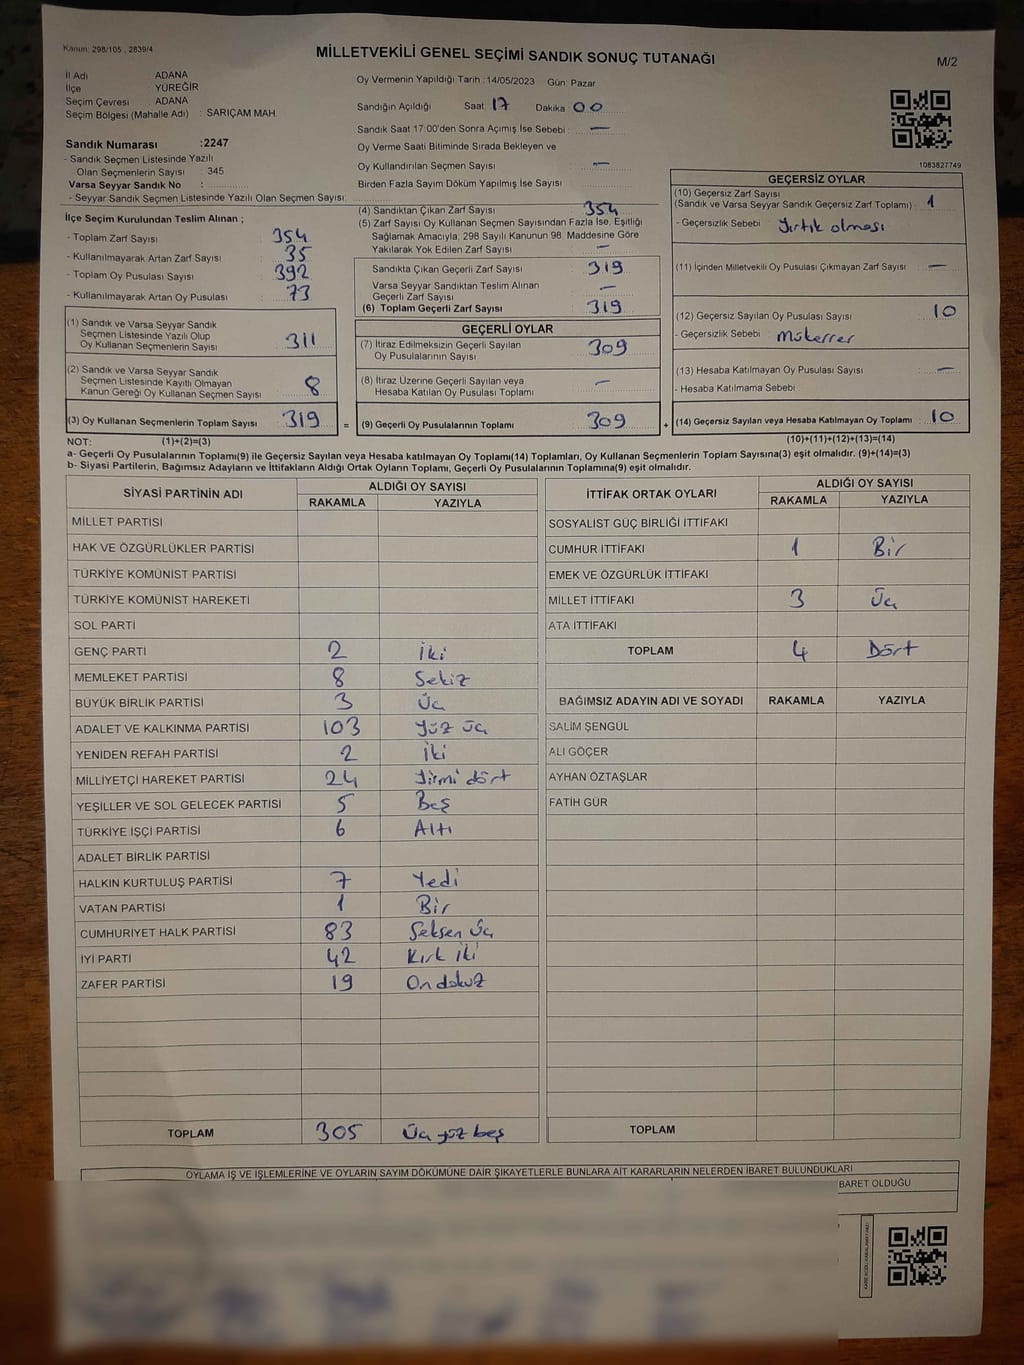 Kanun: 298/105 , 2839/4
MİLLETVEKİLİ GENEL SEÇİMİ SANDIK SONUÇ TUTANAĞI
M/2
İl Adı ADANA
İlçe YÜREĞİR
Seçim Çevresi ADANA
Seçim Bölgesi (Mahalle Adı) : SARIÇAM MAH.
Sandık Numarası :2247
- Sandık Seçmen Listesinde Yazılı
Olan Seçmenlerin Sayısı : 345
Varsa Seyyar Sandık No :
- Seyyar Sandık Seçmen Listesinde Yazılı Olan Seçmen Sayısı:
Oy Vermenin Yapıldığı Tarih :14/05/2023 Gün: Pazar
Sandığın Açıldığı Saat: 17 Dakika : 00
Sandık Saat 17:00'den Sonra Açımış İse Sebebi : —
Oy Verme Saati Bitiminde Sırada Bekleyen ve
Oy Kullandırılan Seçmen Sayısı : —
Birden Fazla Sayım Döküm Yapılmış İse Sayısı
1083827749
İlçe Seçim Kurulundan Teslim Alınan ;
- Toplam Zarf Sayısı : 354
- Kullanılmayarak Artan Zarf Sayısı : 35
- Toplam Oy Pusulası Sayısı : 392
- Kullanılmayarak Artan Oy Pusulası : 73
(1) Sandık ve Varsa Seyyar Sandık
Seçmen Listesinde Yazılı Olup
Oy Kullanan Seçmenlerin Sayısı : 311
(2) Sandık ve Varsa Seyyar Sandık
Seçmen Listesinde Kayıtlı Olmayan
Kanun Gereği Oy Kullanan Seçmen Sayısı : 8
(3) Oy Kullanan Seçmenlerin Toplam Sayısı 319 =
(4) Sandıktan Çıkan Zarf Sayısı : 354
(5) Zarf Sayısı Oy Kullanan Seçmen Sayısından Fazla İse, Eşitliği
Sağlamak Amacıyla; 298 Sayılı Kanunun 98. Maddesine Göre
Yakılarak Yok Edilen Zarf Sayısı : —
Sandıkta Çıkan Geçerli Zarf Sayısı : 319
Varsa Seyyar Sandıktan Teslim Alınan
Geçerli Zarf Sayısı : —
(6) Toplam Geçerli Zarf Sayısı : 319
GEÇERLİ OYLAR
(7) İtiraz Edilmeksizin Geçerli Sayılan
Oy Pusulalarının Sayısı : 309
(8) İtiraz Üzerine Geçerli Sayılan veya
Hesaba Katılan Oy Pusulası Toplamı : —
(9) Geçerli Oy Pusulalarının Toplamı : 309 +
GEÇERSİZ OYLAR
(10) Geçersiz Zarf Sayısı
(Sandık ve Varsa Seyyar Sandık Geçersiz Zarf Toplamı) : 1
- Geçersizlik Sebebi : Yırtık olması
(11) İçinden Milletvekili Oy Pusulası Çıkmayan Zarf Sayısı : —
(12) Geçersiz Sayılan Oy Pusulası Sayısı : 10
- Geçersizlik Sebebi : Mükerrer
(13) Hesaba Katılmayan Oy Pusulası Sayısı : —
- Hesaba Katılmama Sebebi :
(14) Geçersiz Sayılan veya Hesaba Katılmayan Oy Toplamı : 10
NOT: (1)+(2)=(3)
(10)+(11)+(12)+(13)=(14)
a- Geçerli Oy Pusulalarının Toplamı(9) ile Geçersiz Sayılan veya Hesaba katılmayan Oy Toplamı(14) Toplamları, Oy Kullanan Seçmenlerin Toplam Sayısına(3) eşit olmalıdır. (9)+(14)=(3)
b- Siyasi Partilerin, Bağımsız Adayların ve İttifakların Aldığı Ortak Oyların Toplamı, Geçerli Oy Pusulalarının Toplamına(9) eşit olmalıdır.
SİYASİ PARTİNİN ADI ALDIĞI OY SAYISI
RAKAMLA YAZIYLA
MİLLET PARTİSİ
HAK VE ÖZGÜRLÜKLER PARTİSİ
TÜRKİYE KOMÜNİST PARTİSİ
TÜRKİYE KOMÜNİST HAREKETİ
SOL PARTİ
GENÇ PARTİ 2 İki
MEMLEKET PARTİSİ 8 Sekiz
BÜYÜK BİRLİK PARTİSİ 3 Üç
ADALET VE KALKINMA PARTİSİ 103 Yüz üç
YENİDEN REFAH PARTİSİ 2 İki
MİLLİYETÇİ HAREKET PARTİSİ 24 Yirmi dört
YEŞİLLER VE SOL GELECEK PARTİSİ 5 Beş
TÜRKİYE İŞÇİ PARTİSİ 6 Altı
ADALET BİRLİK PARTİSİ
HALKIN KURTULUŞ PARTİSİ 7 Yedi
VATAN PARTİSİ 1 Bir
CUMHURİYET HALK PARTİSİ 83 Seksen Üç
İYİ PARTİ 42 Kırk iki
ZAFER PARTİSİ 19 On dokuz
TOPLAM 305 Üç yüz beş
İTTİFAK ORTAK OYLARI ALDIĞI OY SAYISI
RAKAMLA YAZIYLA
SOSYALİST GÜÇ BİRLİĞİ İTTİFAKI
CUMHUR İTTİFAKI 1 Bir
EMEK VE ÖZGÜRLÜK İTTİFAKI
MİLLET İTTİFAKI 3 Üç
ATA İTTİFAKI
TOPLAM 4 Dört
BAĞIMSIZ ADAYIN ADI VE SOYADI RAKAMLA YAZIYLA
SALİM ŞENGÜL
ALİ GÖÇER
AYHAN ÖZTAŞLAR
FATİH GÜR
TOPLAM
OYLAMA İŞ VE İŞLEMLERİNE VE OYLARIN SAYIM DÖKÜMÜNE DAİR ŞİKAYETLERLE BUNLARA AİT KARARLARIN NELERDEN İBARET BULUNDUKLARI
BARET OLDUĞU